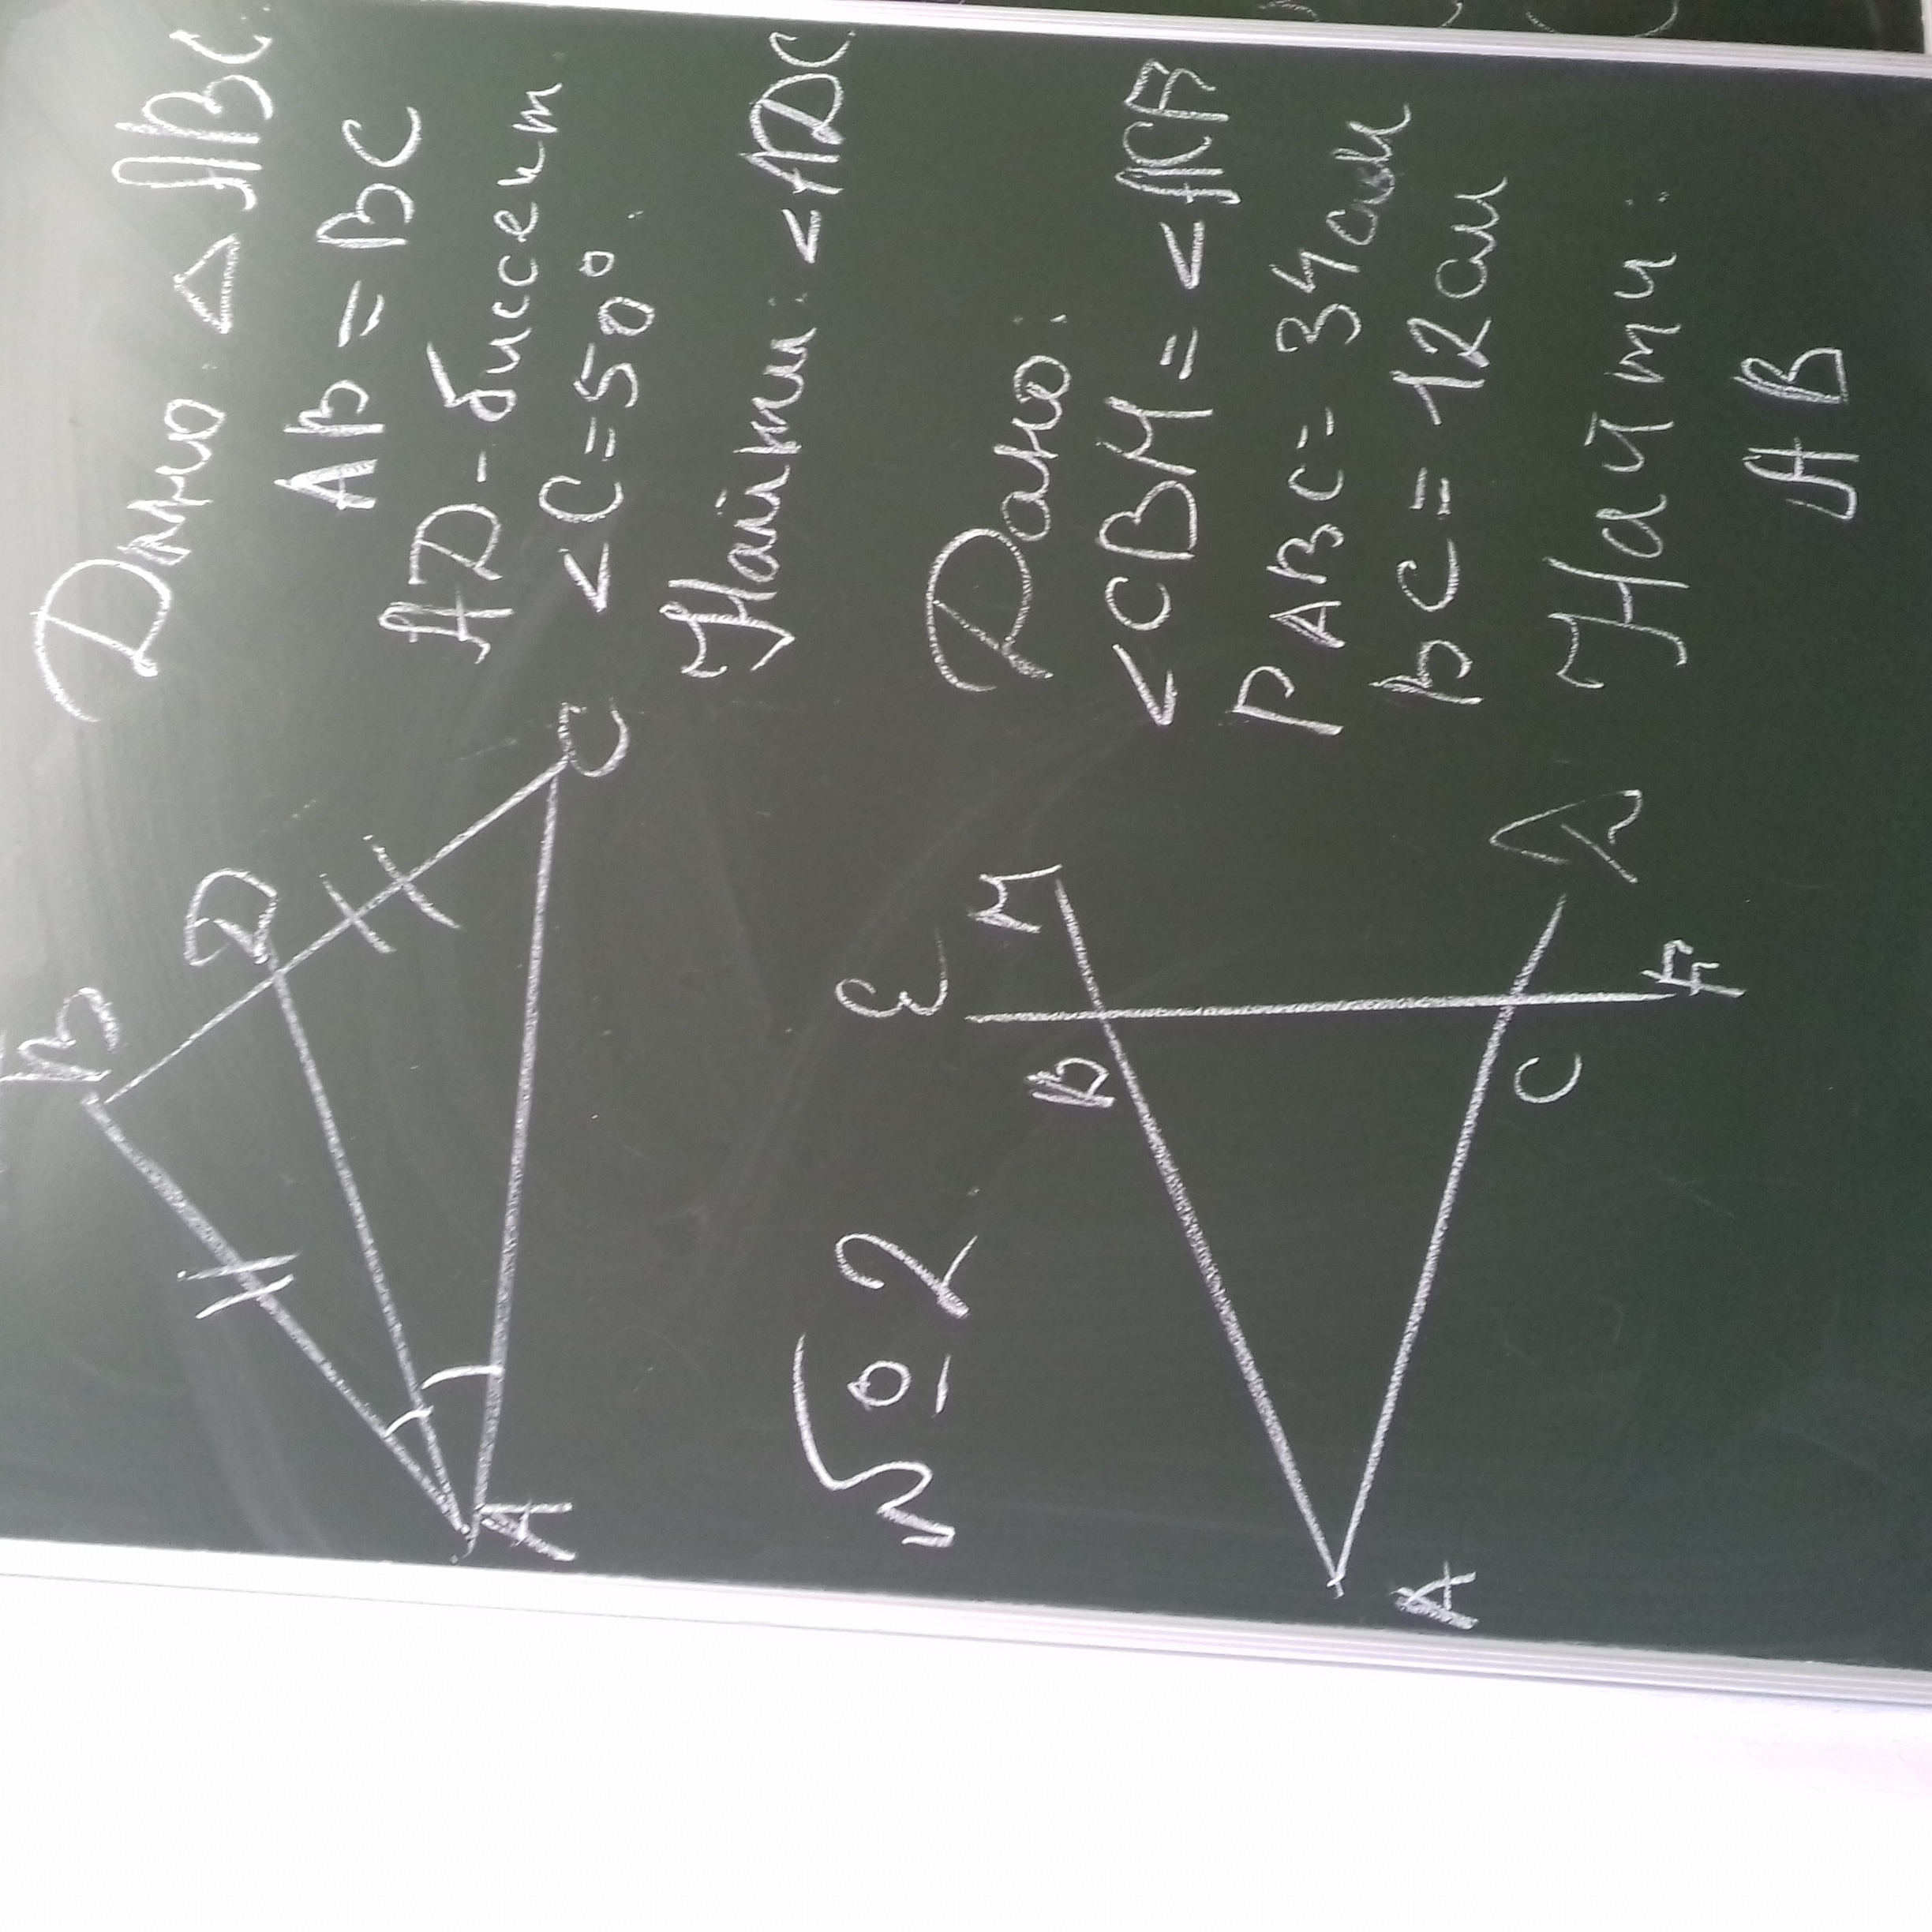 Дано: △ABC.
AB = BC
AD - биссект
<C = 50°.
Найти: <ADC
B
D
A
C
№ 2
Дано:
<CBM = <ACF
PABC = 34 см
BC = 12 см
Найти:
AB
E
M
B
A
C
F
D